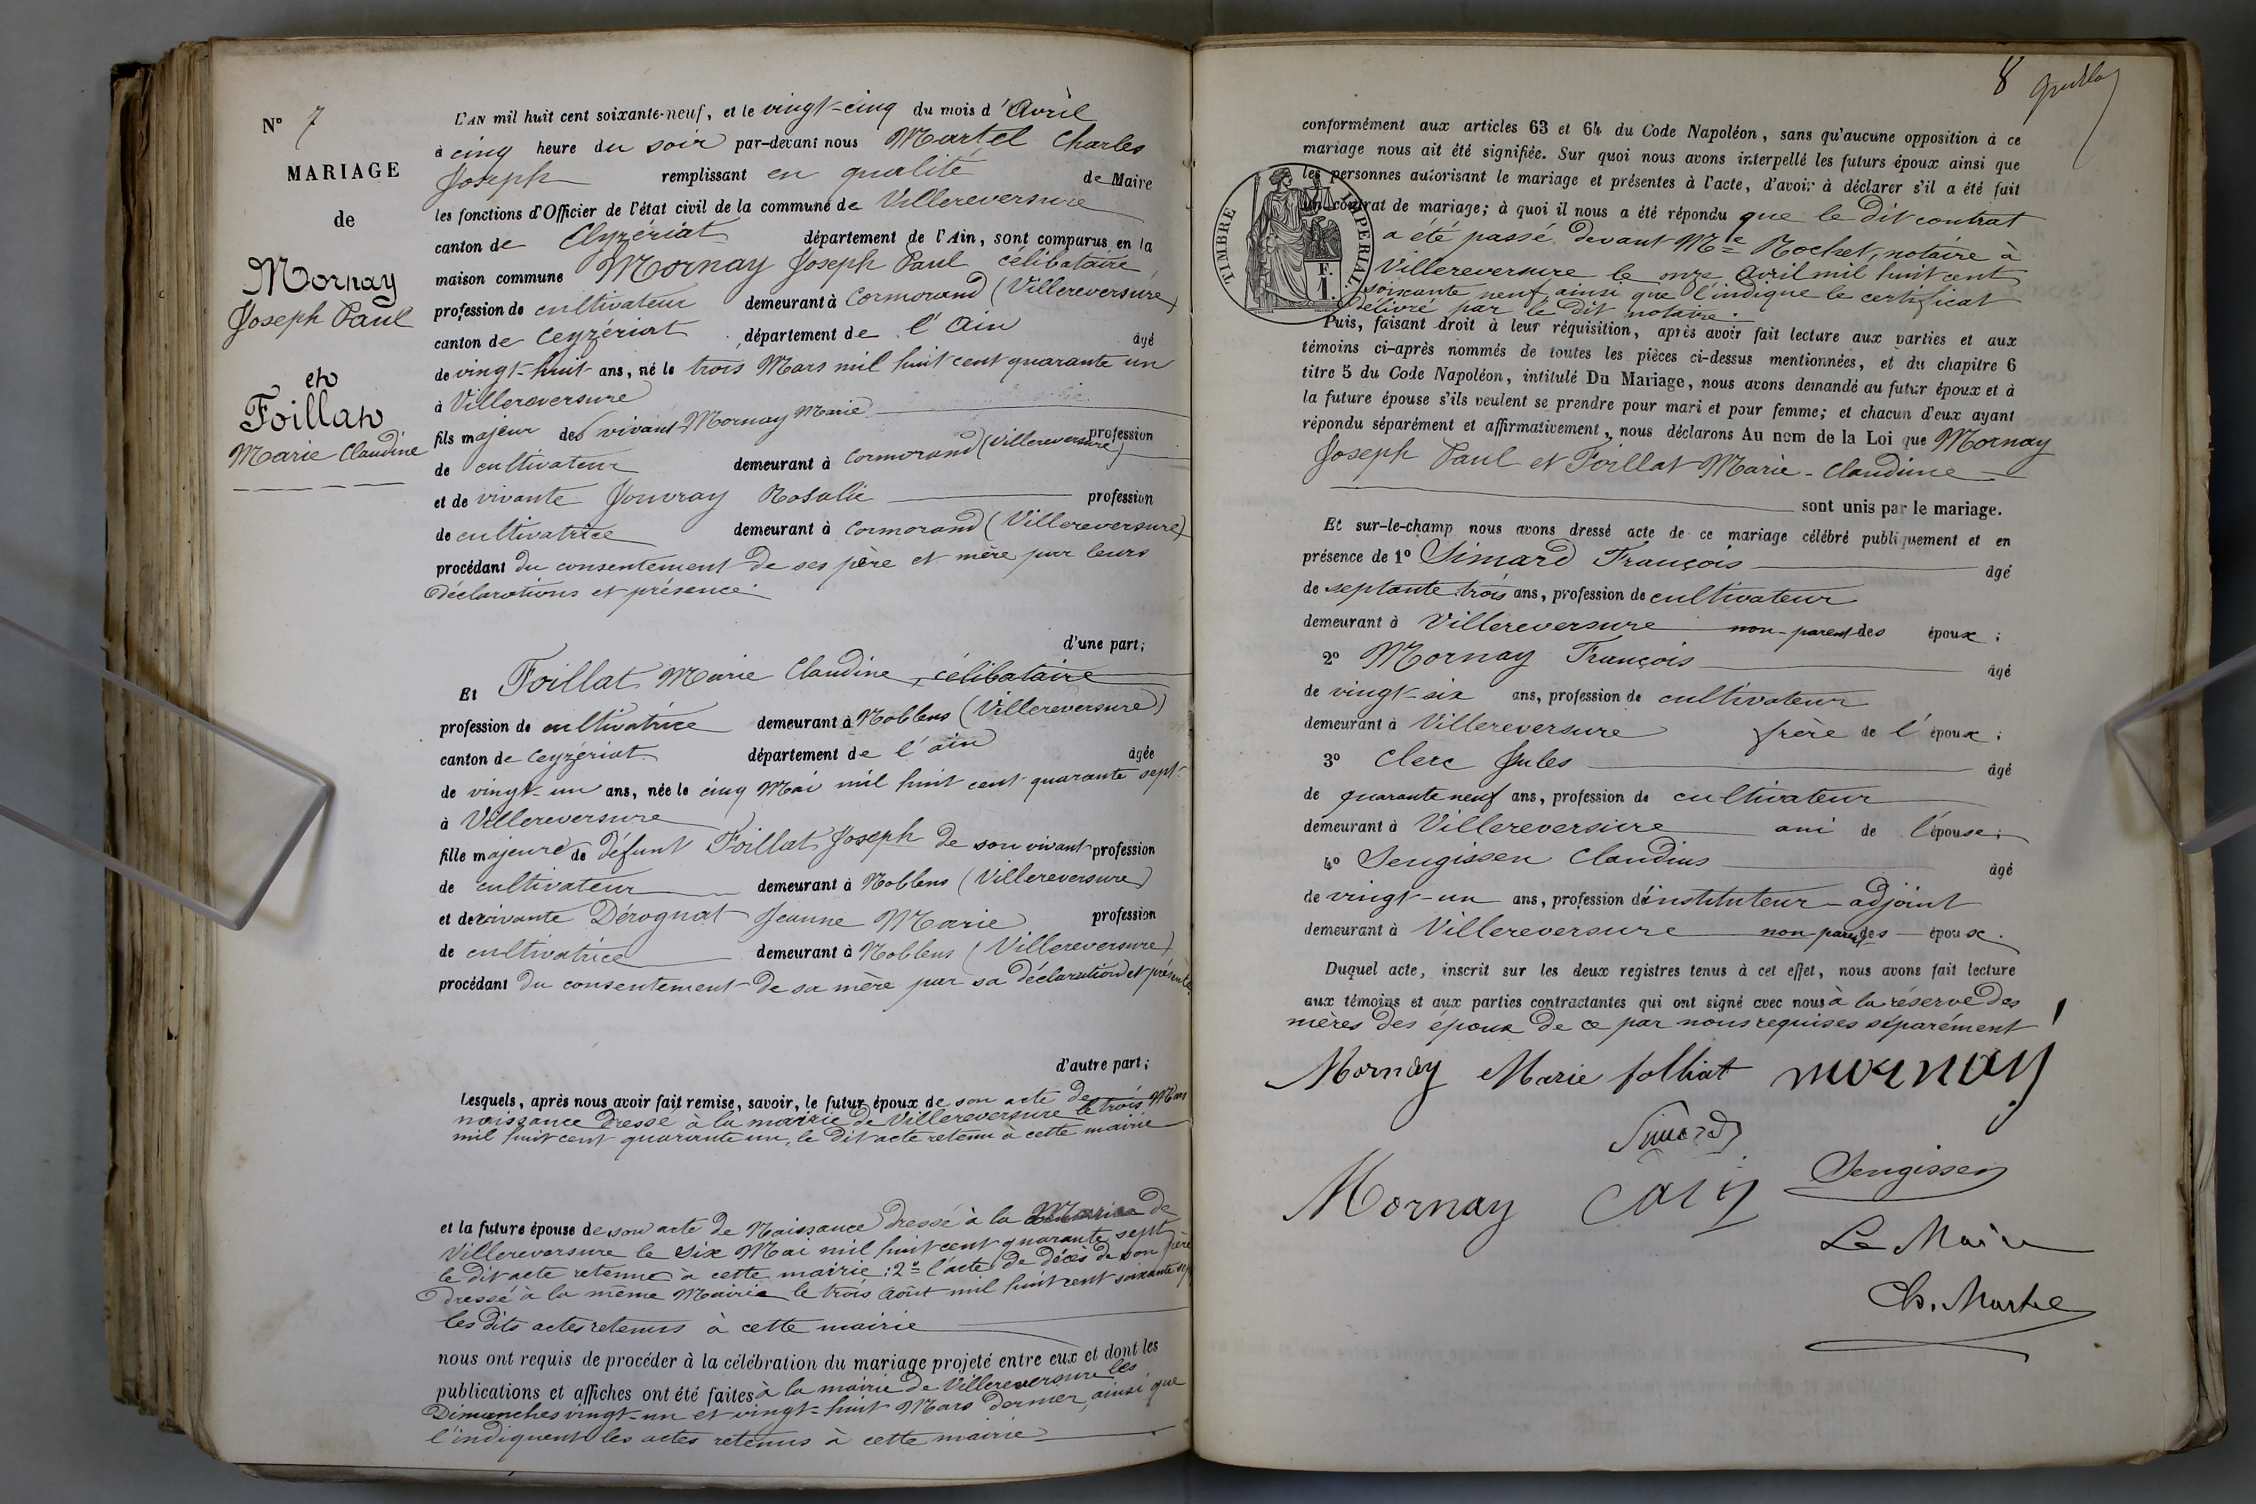 Nº 7
MARIAGE
de
Mornay
Joseph Paul
et
Foillat
Marie Claudine
L'AN mil huit cent soixante-neuf, et le vingt-cinq du mois d'Avril
à cinq heure du soir par-devant nous Martel Charles
Joseph remplissant en qualité de Maire
les fonctions d'Officier de l'état civil de la commune de Villereversure
canton de Ceyzériat département de l'Ain, sont comparus en la
maison commune Mornay Joseph Paul célibataire,
profession de cultivateur demeurant à Cormorand (Villereversure)
canton de Ceyzériat, département de l'Ain âgé
de vingt-huit ans, né le trois Mars mil huit cent quarante un
à Villereversure
fils majeur des vivants Mornay Marie profession
de cultivateur demeurant à Cormorand (Villereversure)
et de vivante Jouvray Rosalie profession
de cultivatrice demeurant à Cormorand (Villereversure)
procédant du consentement de ses père et mère par leurs
déclarations et présence.
d'une part;
Et Foillat Marie Claudine, célibataire
profession de cultivatrice demeurant à Noblens (Villereversure)
canton de Ceyzériat département de l'ain âgée
de vingt-un ans, née le cinq Mai mil huit cent quarante sept
à Villereversure
fille majeure de défunt Foillat Joseph de son vivant profession
de cultivateur demeurant à Noblens (Villereversure)
et de vivante Dérognat Jeanne Marie profession
de cultivatrice demeurant à Noblens (Villereversure)
procédant du consentement de sa mère par sa déclaration et présente
d'autre part;
Lesquels, après nous avoir fait remise, savoir, le futur époux de son acte de
naissance dressé à la mairie de Villereversure le trois Mars
mil huit cent quarante un, le dit acte retenu à cette mairie
et la future épouse de son acte de Naissance dressé à la Mairie de
Villereversure le six Mai mil huit cent quarante sept
le dit acte retenu à cette mairie: 2º l'acte de décès de son père
dressé à la même Mairie le trois Août mil huit cent soixante sept
les dits actes retenus à cette mairie
nous ont requis de procéder à la célébration du mariage projeté entre eux et dont les
publications et affiches ont été faites à la mairie de Villereversure les
Dimanches vingt-un et vingt-huit Mars dernier, ainsi que
l'indiquent les actes retenus à cette mairie
8
conformément aux articles 63 et 64 du Code Napoléon, sans qu'aucune opposition à ce
mariage nous ait été signifiée. Sur quoi nous avons interpellé les futurs époux ainsi que
les personnes autorisant le mariage et présentes à l'acte, d'avoir à déclarer s'il a été fait
un contrat de mariage; à quoi il nous a été répondu que le dit contrat
a été passé devant Me Rochet, notaire à
Villereversure le onze Avril mil huit cent
soixante neuf ainsi que l'indique le certificat
délivré par le dit notaire.
TIMBRE IMPERIAL
F.
1.
Puis, faisant droit à leur réquisition, après avoir fait lecture aux parties et aux
témoins ci-après nommés de toutes les pièces ci-dessus mentionnées, et du chapitre 6
titre 5 du Code Napoléon, intitulé Du Mariage, nous avons demandé au futur époux et à
la future épouse s'ils veulent se prendre pour mari et pour femme; et chacun d'eux ayant
répondu séparément et affirmativement, nous déclarons Au nom de la Loi que Mornay
Joseph Paul et Foillat Marie-Claudine
sont unis par le mariage.
Et sur-le-champ nous avons dressé acte de ce mariage célébré publiquement et en
présence de 1º Simard François âgé
de septante trois ans, profession de cultivateur
demeurant à Villereversure non-parent des époux;
2º Mornay François âgé
de vingt-six ans, profession de cultivateur
demeurant à Villereversure frère de l'époux;
3º Clerc Jules âgé
de quarante neuf ans, profession de cultivateur
demeurant à Villereversure ami de l'épouse;
4º Sengissen Claudius âgé
de vingt-un ans, profession d'instituteur-adjoint
demeurant à Villereversure non parent des épouse.
Duquel acte, inscrit sur les deux registres tenus à cet effet, nous avons fait lecture
aux témoins et aux parties contractantes qui ont signé avec nous à la réserve des
mères des époux de ce par nous requises séparément
Mornay Marie folliat mornay
Simard
Mornay Sengissen
Le Maire
Ch. Martel